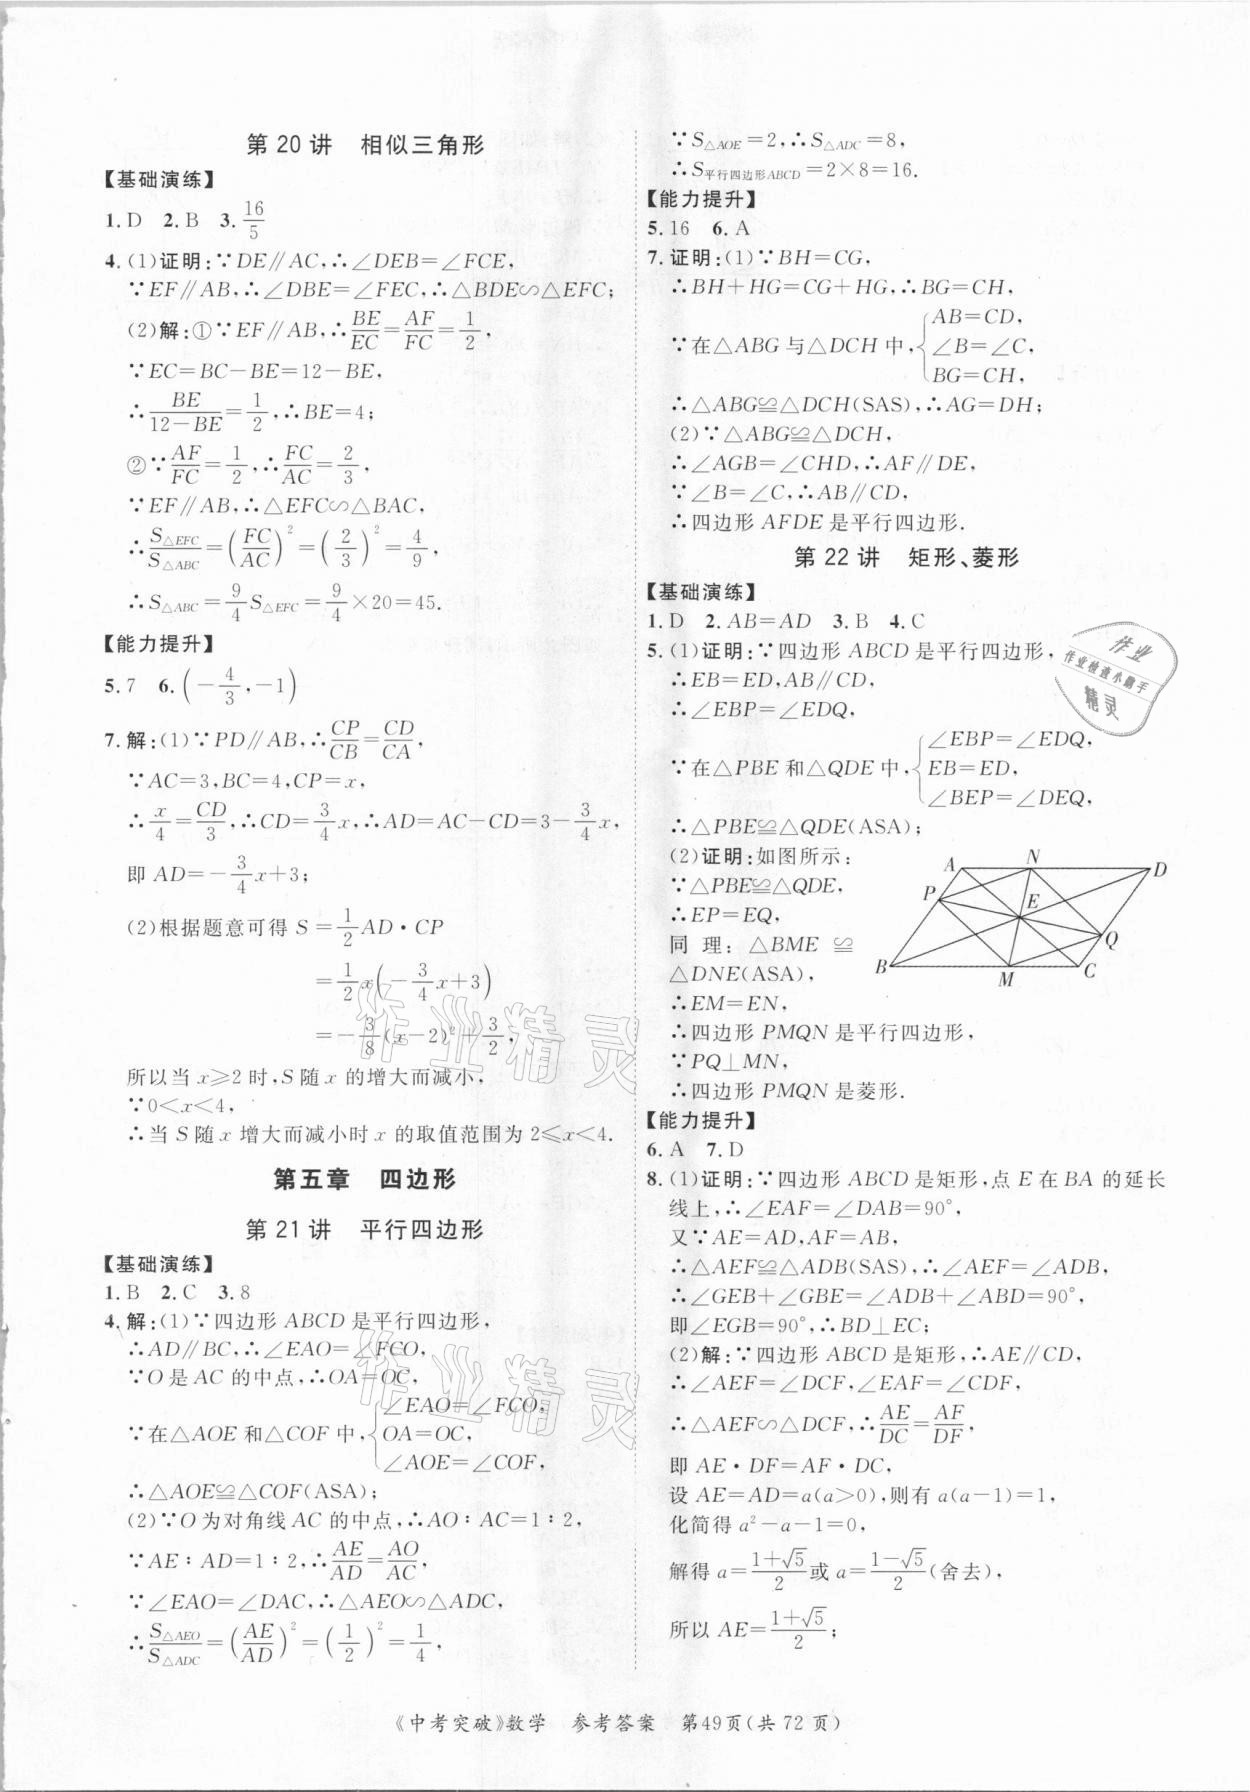 第20讲 相似三角形
【基础演练】
1.D 2.B 3.16/5
4.(1)证明:∵DE∥AC,∴∠DEB=∠FCE,
∵EF∥AB,∴∠DBE=∠FEC,∴△BDE∽△EFC;
(2)解:①∵EF∥AB,∴BE/EC=AF/FC=1/2,
∵EC=BC-BE=12-BE,
∴BE/(12-BE)=1/2,∴BE=4;
②∵AF/FC=1/2,∴FC/AC=2/3,
∵EF∥AB,∴△EFC∽△BAC,
∴S△EFC/S△ABC=(FC/AC)²=(2/3)²=4/9,
∴S△ABC=9/4S△EFC=9/4×20=45.
【能力提升】
5.7 6.(-4/3,-1)
7.解:(1)∵PD∥AB,∴CP/CB=CD/CA,
∵AC=3,BC=4,CP=x,
∴x/4=CD/3,∴CD=3/4x,∴AD=AC-CD=3-3/4x,
即AD=-3/4x+3;
(2)根据题意可得S=1/2AD·CP
=1/2x(-3/4x+3)
=-3/8(x-2)²+3/2,
所以当x≥2时,S随x的增大而减小,
∵0<x<4,
∴当S随x增大而减小时x的取值范围为2≤x<4.
第五章 四边形
第21讲 平行四边形
【基础演练】
1.B 2.C 3.8
4.解:(1)∵四边形ABCD是平行四边形,
∴AD∥BC,∴∠EAO=∠FCO,
∵O是AC的中点,∴OA=OC,
∵在△AOE和△COF中,{∠EAO=∠FCO,
OA=OC,
∠AOE=∠COF,
∴△AOE≌△COF(ASA);
(2)∵O为对角线AC的中点,∴AO∶AC=1∶2,
∵AE∶AD=1∶2,∴AE/AD=AO/AC,
∵∠EAO=∠DAC,∴△AEO∽△ADC,
∴S△AEO/S△ADC=(AE/AD)²=(1/2)²=1/4,
∵S△AOE=2,∴S△ADC=8,
∴S平行四边形ABCD=2×8=16.
【能力提升】
5.16 6.A
7.证明:(1)∵BH=CG,
∴BH+HG=CG+HG,∴BG=CH,
∵在△ABG与△DCH中,{AB=CD,
∠B=∠C,
BG=CH,
∴△ABG≌△DCH(SAS),∴AG=DH;
(2)∵△ABG≌△DCH,
∴∠AGB=∠CHD,∴AF∥DE,
∵∠B=∠C,∴AB∥CD,
∴四边形AFDE是平行四边形.
第22讲 矩形、菱形
【基础演练】
1.D 2.AB=AD 3.B 4.C
5.(1)证明:∵四边形ABCD是平行四边形,
∴EB=ED,AB∥CD,
∴∠EBP=∠EDQ,
∵在△PBE和△QDE中,{∠EBP=∠EDQ,
EB=ED,
∠BEP=∠DEQ,
∴△PBE≌△QDE(ASA);
(2)证明:如图所示:
∵△PBE≌△QDE,
∴EP=EQ,
同理:△BME≌
△DNE(ASA),
∴EM=EN,
A N D
P E
Q
B M C
∴四边形PMQN是平行四边形,
∵PQ⊥MN,
∴四边形PMQN是菱形.
【能力提升】
6.A 7.D
8.(1)证明:∵四边形ABCD是矩形,点E在BA的延长
线上,∴∠EAF=∠DAB=90°,
又∵AE=AD,AF=AB,
∴△AEF≌△ADB(SAS),∴∠AEF=∠ADB,
∴∠GEB+∠GBE=∠ADB+∠ABD=90°,
即∠EGB=90°,∴BD⊥EC;
(2)解:∵四边形ABCD是矩形,∴AE∥CD,
∴∠AEF=∠DCF,∠EAF=∠CDF,
∴△AEF∽△DCF,∴AE/DC=AF/DF,
即AE·DF=AF·DC,
设AE=AD=a(a>0),则有a(a-1)=1,
化简得a²-a-1=0,
解得a=(1+√5)/2或a=(1-√5)/2(舍去),
所以AE=(1+√5)/2;
《中考突破》数学 参考答案 第49页(共72页)
作业
作业检查小助手
精灵
作业精灵
作业精灵